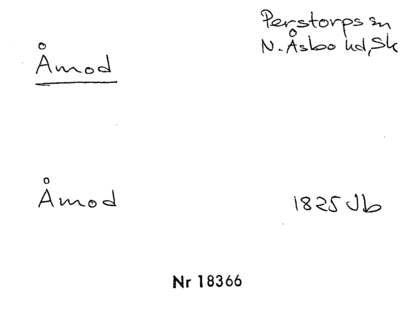 Åmod
Perstorps sn
N. Åsbo hd, Sk
Åmod
1825 Jb
Nr 18366